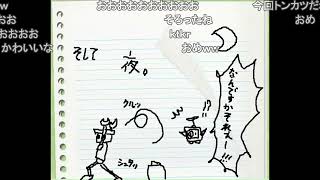 w
おおおおおおおおおお
今回トンカツだ
おお
そろったね
おめ
おおおお
ktkr
かわいいな
おめww
そして
夜。
なんですかそれスー!!!
クルッ
!?
シュタッ